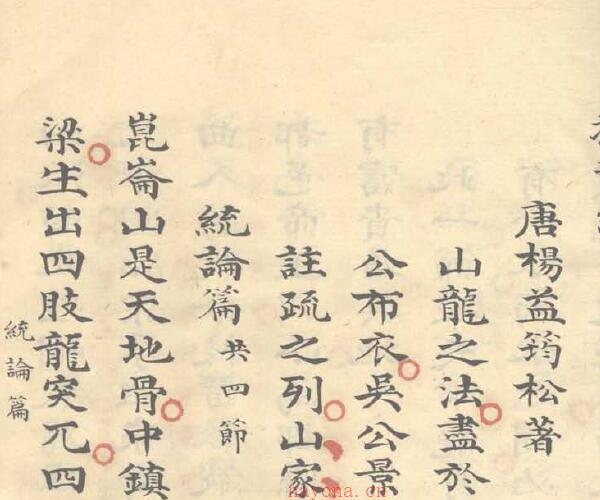 唐楊益筠松著
山龍之法盡於
公布衣吳公景
註疏之列山家
統論篇共四節
崑崙山是天地骨中鎮
梁生出四肢龍突兀四
統論篇
nayona.cn